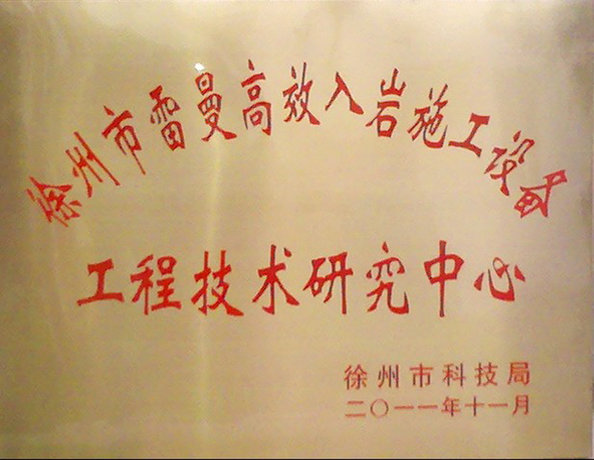 徐州市雷曼高效入岩施工设备
工程技术研究中心
徐州市科技局
二〇一一年十一月